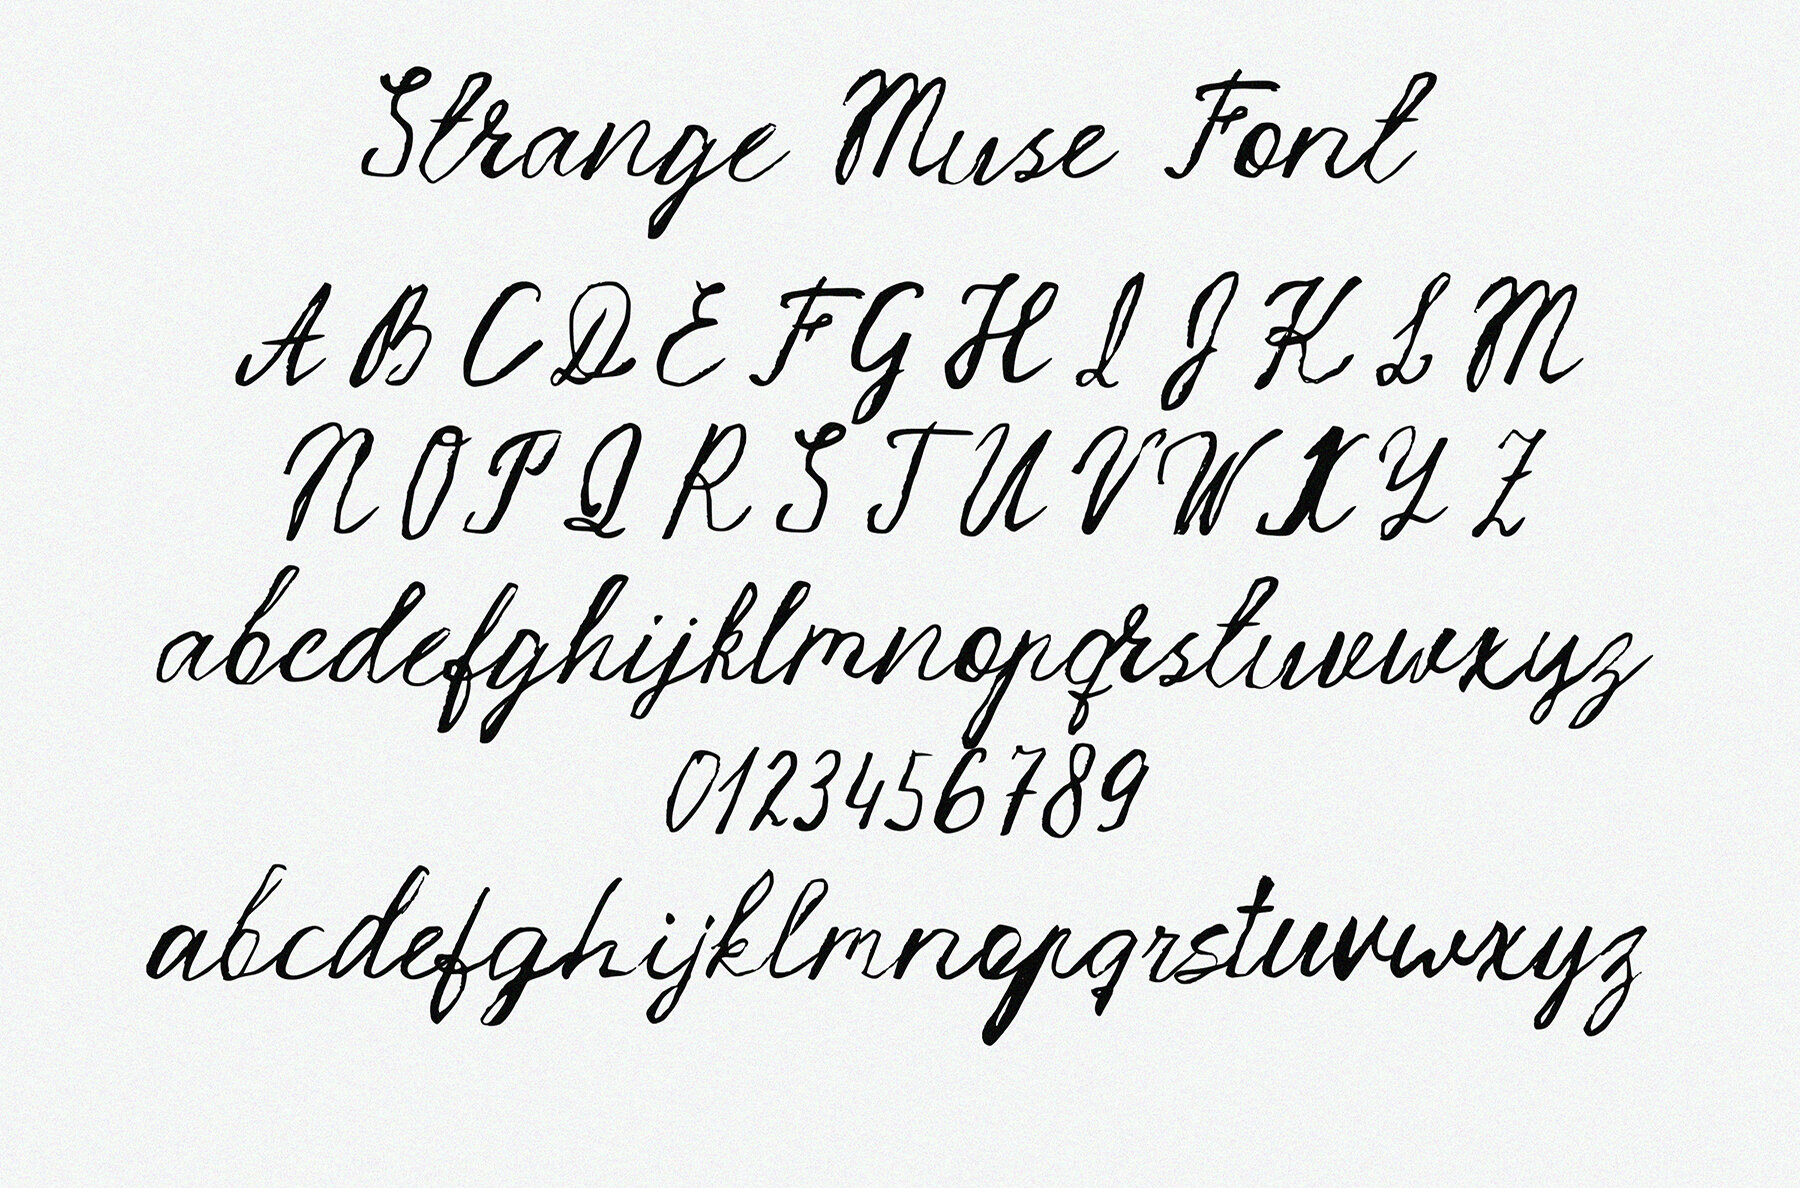 Strange Muse Font
A B C D E F G H I J K L M
N O P Q R S T U V W X Y Z
abcdefghijklmnopqrstuvwxyz
0123456789
abcdefghijklmnopqrstuvwxyz